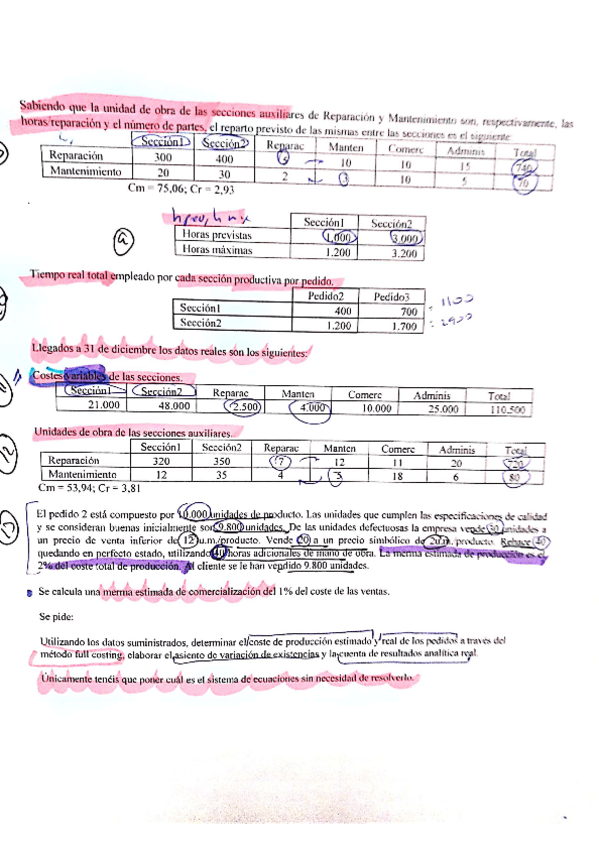 Sabiendo que la unidad de obra de las secciones auxiliares de Reparación y Mantenimiento son, respectivamente, las
horas reparación y el número de partes, el reparto previsto de las mismas entre las secciones es el siguiente
Sección1 Sección2 Reparac Manten Comerc Adminis Total
Reparación 300 400 5 10 10 15 740
Mantenimiento 20 30 2 3 10 5 70
Cm = 75,06; Cr = 2,93
Sección1 Sección2
Horas previstas 1.000 3.000
Horas máximas 1.200 3.200
Tiempo real total empleado por cada sección productiva por pedido.
Pedido2 Pedido3
Sección1 400 700 : 1100
Sección2 1.200 1.700 : 2900
Llegados a 31 de diciembre los datos reales son los siguientes:
Costes variables de las secciones.
Sección1 Sección2 Reparac Manten Comerc Adminis Total
21.000 48.000 2.500 4.000 10.000 25.000 110.500
Unidades de obra de las secciones auxiliares.
Sección1 Sección2 Reparac Manten Comerc Adminis Total
Reparación 320 350 7 12 11 20 720
Mantenimiento 12 35 4 3 18 6 80
Cm = 53,94; Cr = 3,81
El pedido 2 está compuesto por 10.000 unidades de producto. Las unidades que cumplen las especificaciones de calidad
y se consideran buenas inicialmente son 9.800 unidades. De las unidades defectuosas la empresa vende unidades a
un precio de venta inferior de 12 u.m./producto. Vende a un precio simbólico de producto. Rehace
quedando en perfecto estado, utilizando 40 horas adicionales de mano de obra. La merma estimada de producción es el
2% del coste total de producción. Al cliente se le han vendido 9.800 unidades.
Se calcula una merma estimada de comercialización del 1% del coste de las ventas.
Se pide:
Utilizando los datos suministrados, determinar el coste de producción estimado y real de los pedidos a través del
método full costing, elaborar el asiento de variación de existencias y la cuenta de resultados analítica real.
Únicamente tenéis que poner cuál es el sistema de ecuaciones sin necesidad de resolverlo.